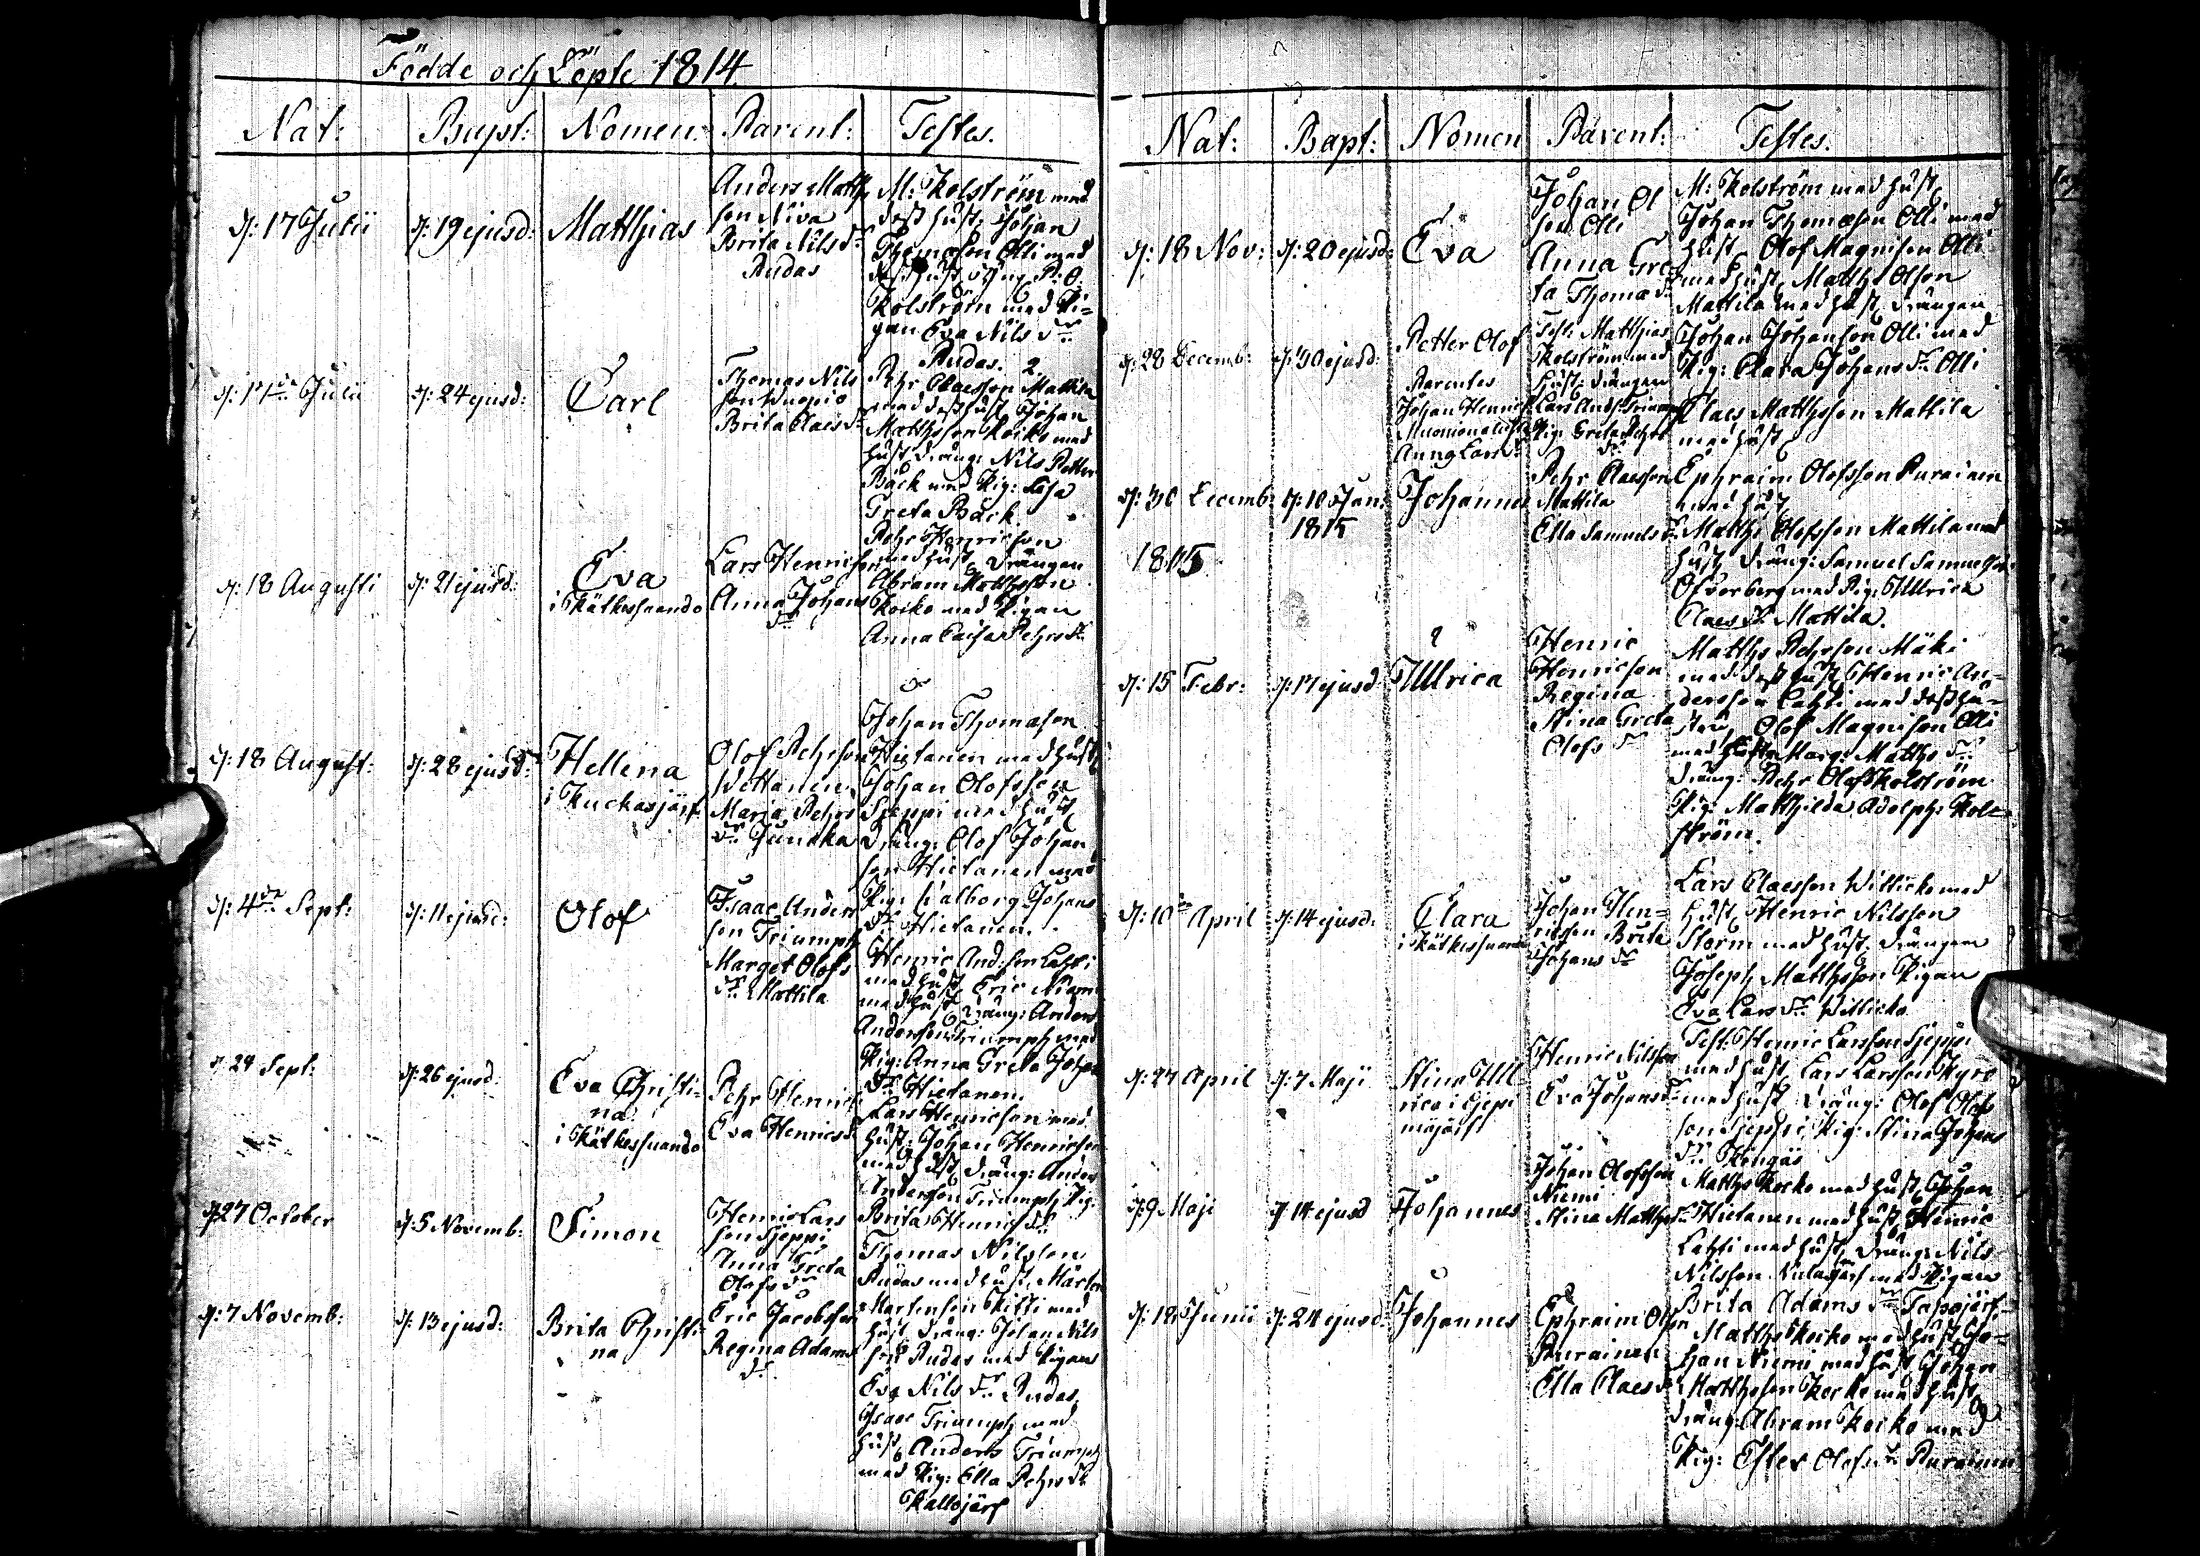 Födde och Döpte 1814.
Nat: Bapt: Nomen. Parent: Testes.
d: 17 Julii d: 19 ejusd: Matthias
Anders Matths
son Niva
Brita Nilsdr
Rudas
M: Kolström med
dess hust. Johan
Thomason Olli med
Kolström med Pi-
gan Eva Nils dr
Rudas. 2.
d: 17de Julii d: 24 ejusd: Carl
Thomas Nils
son
Brita Claes dr
Pehr Claesson Mattila
med dess hust, Johan
Matthsson Koiko med
hust dräng: Nils Petter
Bäck med Pig: Caisa
Greta Bäck.
d: 18 Augusti d: 21 ejusd: Eva
i Kätkessuando
Lars Henricson
Anna Johans
dr
Pehr Henricson
med hust, drängen
Abram Matthsson
Koiko med Pigan
Anna Caisa Pehrs dr
d: 18 August: d: 28 ejusd: Hellena
i Kuckasjärf
Olof Pehrson
Wettanen
Maria Pehrs
dr Junkka
Johan Thomason
Hietanen med hust
Johan Olofsson
Sieppi med hust
Dräng: Olof Johan
son Hietanen med
Pig: Walborg Johans
dr Hietanen.
d: 4de Sept: d: 11 ejusd: Olof
Isaac Anders
son Triumph
Marget Olofs
dr Mattila
Henric And:son Lahti
med hust, Eric Niemi
med hust dräng: Anders
Andersson Triumph med
Pig: Anna Greta Johans
dr Hietanen.
d: 24 Sept: d: 26 ejusd: Eva Christi-
na
i Kätkessuando
Pehr Henrics
Eva Henricsdr
Lars Henricson med
hust: Johan Henricson
med hust, dräng: Anders
Andersson Triumph, Pig:
Brita Henrics dr
d: 27 October d: 5 Novemb: Simon
Henric Lars
son Sieppi
Anna Greta
Olofs dr
Thomas Nilsson
Rudas med hust, Mårten
Martenson Kitti med
hust dräng: Johan Nils
son Rudas med Pigan
Eva Nils dr Rudas,
d: 7 Novemb: d: 13 ejusd: Brita Christi-
na
Eric Jacobsson
Regina Adams
dr
Isaac Triumph med
hust, Anders Triumph
med Pig: Ella Pehrs dr
Kallojärf
Nat: Bapt: Nomen Parent: Testes.
d: 18 Nov: d: 20 ejusd: Eva
Johan Ol
son Olli
Anna Gre
ta Thoma dr
M: Kolström med hust,
Johan Thomason Olli med
hust, Olof Magnison Olli
med hust, Matths Olson
Mattila med hust, drängen
Johan Johanson Olli med
Pig: Clara Johans dr Olli
d: 28 Decemb: d: 30 ejusd: Petter Olof
Parentes
Johan Henrics
Anna Lars dr
Test: Matthias
Kolström med
hust, drängen
Lars And:
Pig: Greta Pehrs
dr
Claes Matthsson Mattila
med hust
d: 30 Decemb: d: 10 Jan:
1815
Johannes
Pehr Claesson
Mattila
Ella Samuels dr
Ephraim Olofsson Purainen
med hust
Matths Olofsson Mattila med
hust, dräng: Samuel Samuelson
Öfverberg med Pig: Ullrica
Claes dr Mattila.
1815
d: 15 Febr: d: 17 ejusd Ullrica
Henric
Henricson
Regina
Stina Greta
Olofs dr
Matths Pehrson Mäki
med dess hust, Henric An-
dersson Lahti med dess hu-
stru, Olof Magnison Olli
med hustru Marg: Matths dr
dräng: Pehr Olof Kolström
Pig: Mathilda Adolph: Kol-
ström.
d: 10de April d: 14 ejusd: Clara
i Kätkessuando
Johan Hen-
ricson Brita
Johans dr
Lars Claesson Witticko med
hust, Henric Nilsson
Storm med hust, drängen
Joseph Matthsson Pigan
Eva Lars dr Witticko
d: 27 April d: 7 Maji Stina Ull-
rica i
Henric Nilsson
Eva Johansdr
Test: Henric Larsson Sieppi
med hust, Lars Larsson Kyrö
med hust, dräng: Olof Olof
son Sieppi, Pig: Stina Johans
dr Kengäs
d: 9 Maji d: 14 ejusd Johannes
Johan Olofsson
Niemi
Stina Matths dr
Matths Koiko med hust, Johan
Hietanen med hust, Henric
Lahti med hust, dräng: Nils
Nilsson med Pigan
Brita Adams dr Tapojärf
d: 18 Junii d: 24 ejusd: Johannes
Ephraim Olson
Purainen
Ella Claes dr
Matths Koiko med hust, Jo-
han Niemi med hust, Johan
Matthsson Koiko med hust,
dräng: Abram Koiko med
Pig: Ester Olofs dr Purainen